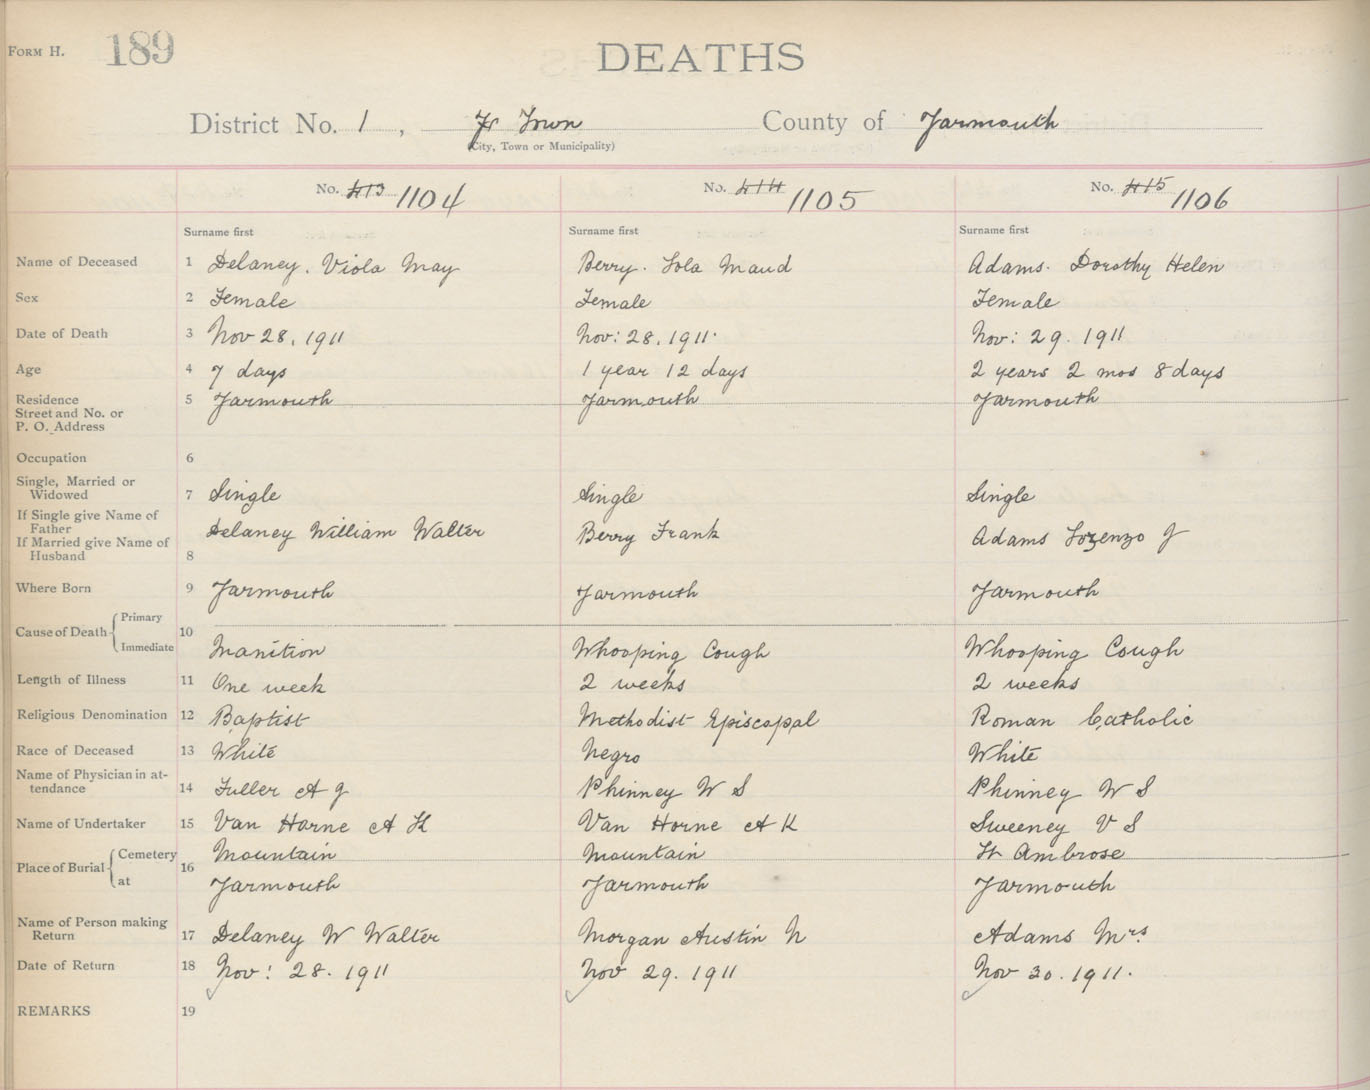 FORM H. 189
DEATHS
District No. 1, Yr Town County of Yarmouth
(City, Town or Municipality)
No. 413 1104 No. 414 1105 No. 415 1106
Surname first Surname first Surname first
Name of Deceased 1 Delaney. Viola May Berry. Lola Maud Adams. Dorothy Helen
Sex 2 Female Female Female
Date of Death 3 Nov 28, 1911 Nov: 28, 1911. Nov: 29. 1911
Age 4 7 days 1 year 12 days 2 years 2 mos 8 days
Residence 5 Yarmouth Yarmouth Yarmouth
Street and No. or
P. O. Address
Occupation 6
Single, Married or
Widowed 7 Single Single Single
If Single give Name of
Father Delaney William Walter Berry Frank Adams Lorenzo J
If Married give Name of
Husband 8
Where Born 9 Yarmouth Yarmouth Yarmouth
Cause of Death Primary 10
Immediate Inanition Whooping Cough Whooping Cough
Length of Illness 11 One week 2 weeks 2 weeks
Religious Denomination 12 Baptist Methodist Episcopal Roman Catholic
Race of Deceased 13 White Negro White
Name of Physician in at-
tendance 14 Fuller A J Phinney W S Phinney W S
Name of Undertaker 15 Van Horne A K Van Horne A K Sweeney V S
Place of Burial Cemetery 16 Mountain Mountain St Ambrose
at Yarmouth Yarmouth Yarmouth
Name of Person making
Return 17 Delaney W Walter Morgan Austin N Adams Mrs
Date of Return 18 Nov: 28. 1911 Nov 29. 1911 Nov 30. 1911.
REMARKS 19